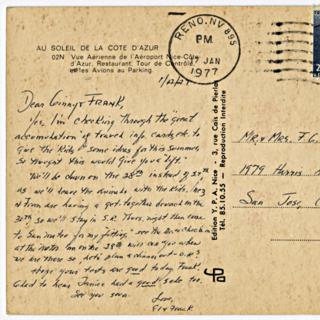 AU SOLEIL DE LA COTE D'AZUR
02N Vue Aérienne de l'Aéroport Nice-Côte
d'Azur, Restaurant, Tour de Contrôle,
et les Avions au Parking.
RENO, NV 895
PM
JAN
1977
Dear Ginny & FRANK,
Yes, I'm checking through the "great
accumulation" of travel info, cards, etc. to
give the Kids some ideas for this summer,
so thought this would give you a "lift."
We'll be down on the 28th instead
as we'll leave the with the Kids,
& Tom are having a get-together on the
30th so we'll stay in S.R. Thurs. night then come
to San Mateo for my fitting, see the
at the motor Inn on the 28th miss can you when
we are there so, hotel plan
Hope your tests are good today Frank,
Glad to hear Janice had a good sale too.
See you soon.
Love,
Frank
Edition Y.P.A. Nice - 3, rue Cais de Pierlas
Tél. 85.10.55 - Reproduction Interdite
Mr. & Mrs. F.
1979 Harris
San Jose, C